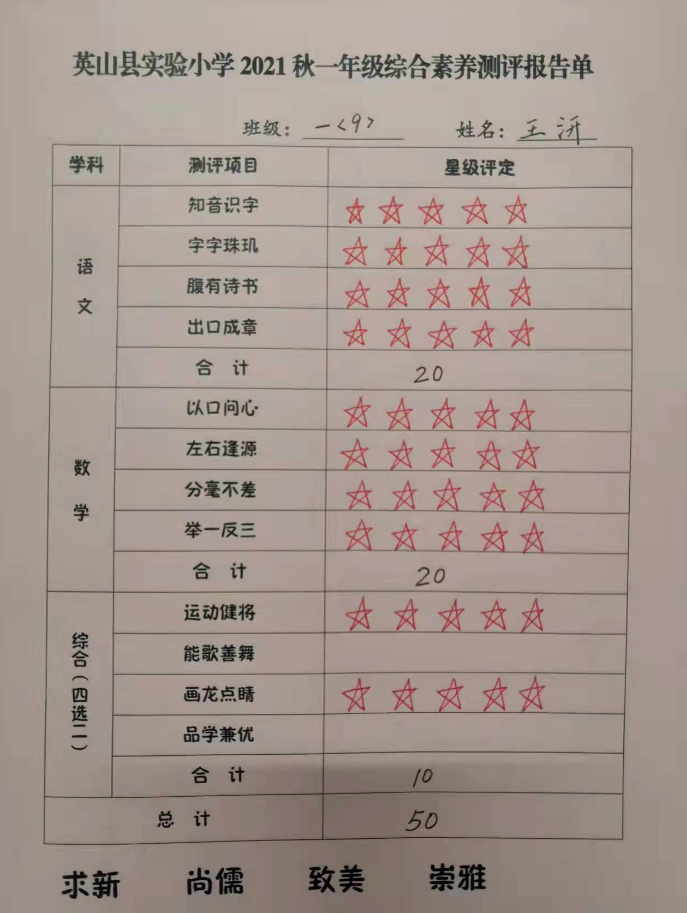 英山县实验小学2021秋一年级综合素养测评报告单
班级：一<9> 姓名：王沂
学科 测评项目 星级评定
语文
知音识字
字字珠玑
腹有诗书
出口成章
合计 20
数学
以口问心
左右逢源
分毫不差
举一反三
合计 20
综合（四选二）
运动健将
能歌善舞
画龙点睛
品学兼优
合计 10
总计 50
求新 尚儒 致美 崇雅